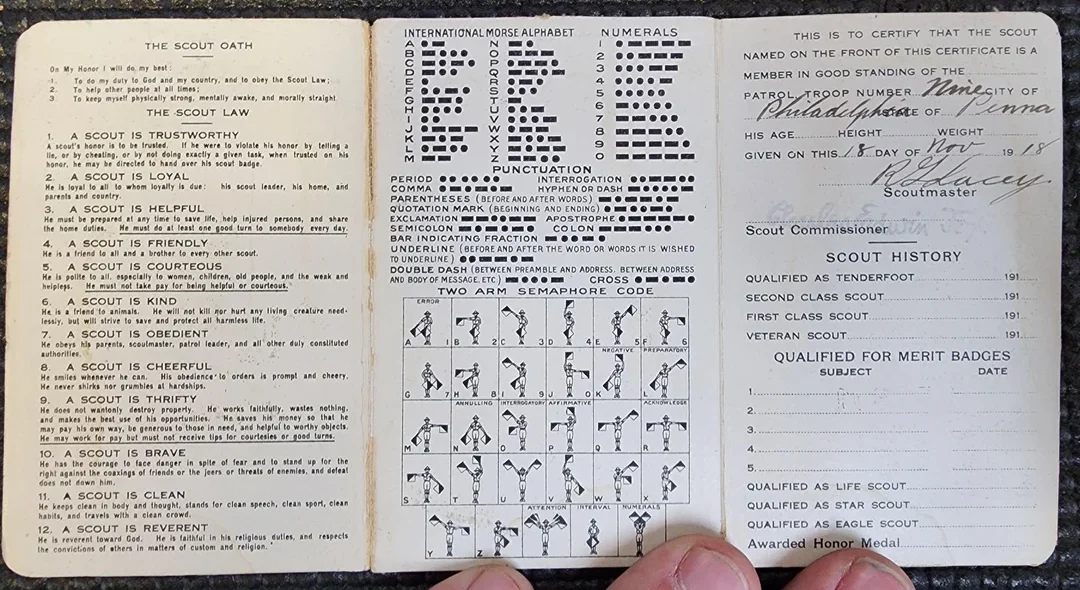 THE SCOUT OATH
On My Honor I will do my best:
1. To do my duty to God and my country, and to obey the Scout Law;
2. To help other people at all times;
3. To keep myself physically strong, mentally awake, and morally straight.
THE SCOUT LAW
1. A SCOUT IS TRUSTWORTHY
A scout's honor is to be trusted. If he were to violate his honor by telling a
lie, or by cheating, or by not doing exactly a given task, when trusted on his
honor, he may be directed to hand over his scout badge.
2. A SCOUT IS LOYAL
He is loyal to all to whom loyalty is due: his scout leader, his home, and
parents and country.
3. A SCOUT IS HELPFUL
He must be prepared at any time to save life, help injured persons, and share
the home duties. He must do at least one good turn to somebody every day.
4. A SCOUT IS FRIENDLY
He is a friend to all and a brother to every other scout.
5. A SCOUT IS COURTEOUS
He is polite to all, especially to women, children, old people, and the weak and
helpless. He must not take pay for being helpful or courteous.
6. A SCOUT IS KIND
He is a friend to animals. He will not kill nor hurt any living creature need-
lessly, but will strive to save and protect all harmless life.
7. A SCOUT IS OBEDIENT
He obeys his parents, scoutmaster, patrol leader, and all other duly constituted
authorities.
8. A SCOUT IS CHEERFUL
He smiles whenever he can. His obedience to orders is prompt and cheery.
He never shirks nor grumbles at hardships.
9. A SCOUT IS THRIFTY
He does not wantonly destroy property. He works faithfully, wastes nothing,
and makes the best use of his opportunities. He saves his money so that he
may pay his own way, be generous to those in need, and helpful to worthy objects.
He may work for pay but must not receive tips for courtesies or good turns.
10. A SCOUT IS BRAVE
He has the courage to face danger in spite of fear and to stand up for the
right against the coaxings of friends or the jeers or threats of enemies, and defeat
does not down him.
11. A SCOUT IS CLEAN
He keeps clean in body and thought, stands for clean speech, clean sport, clean
habits, and travels with a clean crowd.
12. A SCOUT IS REVERENT
He is reverent toward God. He is faithful in his religious duties, and respects
the convictions of others in matters of custom and religion.
INTERNATIONAL MORSE ALPHABET NUMERALS
A N 1
B O 2
C P 3
D Q 4
E R 5
F S 6
G T 7
H U 8
I V 9
J W 0
K X
L Y
M Z
PUNCTUATION
PERIOD INTERROGATION
COMMA HYPHEN OR DASH
PARENTHESES (BEFORE AND AFTER WORDS)
QUOTATION MARK (BEGINNING AND ENDING)
EXCLAMATION APOSTROPHE
SEMICOLON COLON
BAR INDICATING FRACTION
UNDERLINE (BEFORE AND AFTER THE WORD OR WORDS IT IS WISHED
TO UNDERLINE)
DOUBLE DASH (BETWEEN PREAMBLE AND ADDRESS. BETWEEN ADDRESS
AND BODY OF MESSAGE, ETC.) CROSS
TWO ARM SEMAPHORE CODE
ERROR
A 1 B 2 C 3 D 4 E 5 F 6
NEGATIVE PREPARATORY
G 7 H 8 I 9 J 0 K L
ANNULLING INTERROGATORY AFFIRMATIVE ACKNOWLEDGE
M N O P Q R
S T U V W X
ATTENTION INTERVAL NUMERALS
Y Z
THIS IS TO CERTIFY THAT THE SCOUT
NAMED ON THE FRONT OF THIS CERTIFICATE IS A
MEMBER IN GOOD STANDING OF THE
PATROL, TROOP NUMBER Nine CITY OF
Philadelphia STATE OF Penna
HIS AGE HEIGHT WEIGHT
GIVEN ON THIS 18 DAY OF Nov 1918
Scoutmaster
Scout Commissioner
SCOUT HISTORY
QUALIFIED AS TENDERFOOT 191
SECOND CLASS SCOUT 191
FIRST CLASS SCOUT 191
VETERAN SCOUT 191
QUALIFIED FOR MERIT BADGES
SUBJECT DATE
1.
2.
3.
4.
5.
QUALIFIED AS LIFE SCOUT
QUALIFIED AS STAR SCOUT
QUALIFIED AS EAGLE SCOUT
Awarded Honor Medal